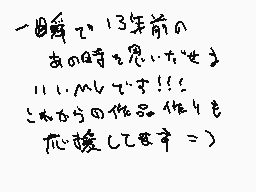 一瞬で13年前の
あの時を思いだせる
いいMVです!!!
これからの作品作りも
応援してます=)